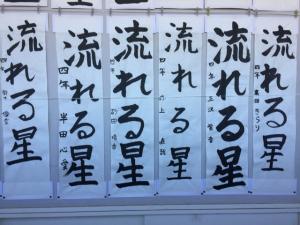 流れる星
四年
流れる星
四年 半田 心愛
流れる星
四年
流れる星
四年
流れる星
四年
流れる星
四年